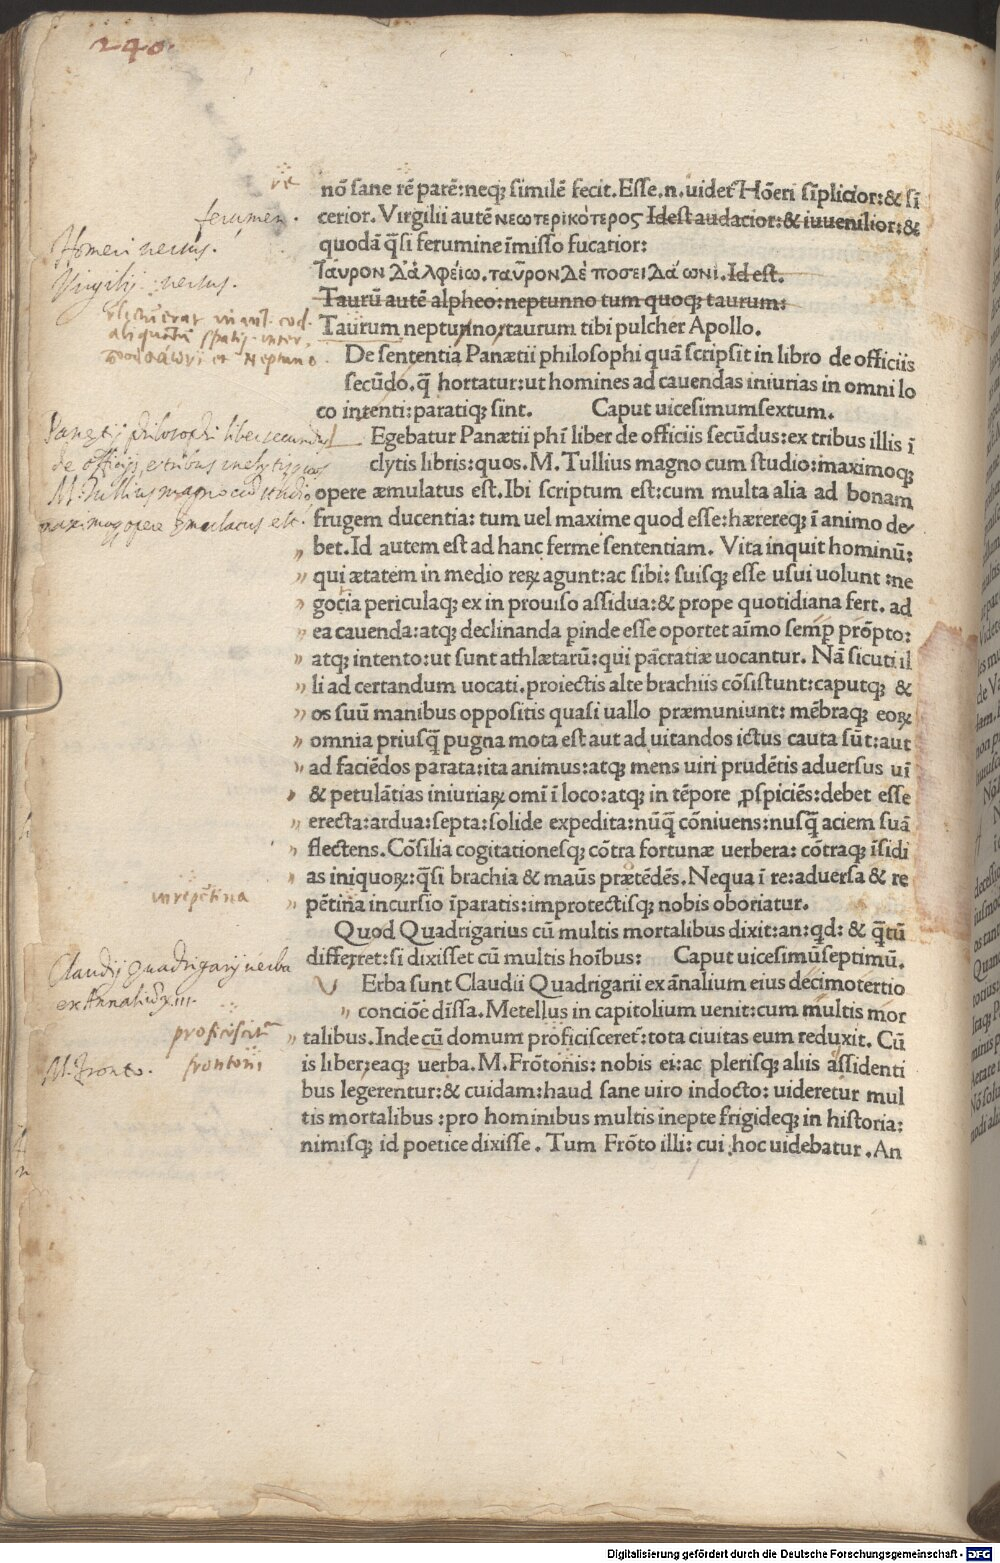 240.
nō sane rē parē:neqꝫ similē fecit. Esse.n.uidet̄ Hōeri sīplicior:& sī
cerior. Virgilii autē νεωτερικότερος Idest audacior:& iuuenilior:&
ferumen.
quodā q̄si ferumine īmisso fucatior:
Homeri versus.
ταύρον Δ'ἀλφείω.ταῦρον Δὲ ποσειΔάωνι.Id est.
Virgilij versus.
Taurū autē alpheo:neptunno tum quoqꝫ taurum:
Taurum neptunno,taurum tibi pulcher Apollo.
De sententia Panætii philosophi quā scripsit in libro de officiis
secūdo.q̄ hortatur:ut homines ad cauendas iniurias in omni lo
co intenti:paratiqꝫ sint. Caput uicesimumsextum.
Panætij philosophi liber secundus
de officijs, e tribus inclytis
M. Tullius magno cū studio,
maximoqꝫ opere æmulatus est.
Egebatur Panætii phī liber de officiis secūdus:ex tribus illis ī
clytis libris:quos.M.Tullius magno cum studio:maximoqꝫ
opere æmulatus est.Ibi scriptum est:cum multa alia ad bonam
frugem ducentia:tum uel maxime quod esse:hærereqꝫ ī animo de
bet.Id autem est ad hanc ferme sententiam. Vita inquit hominū:
qui ætatem in medio reꝝ agunt:ac sibi:suisqꝫ esse usui uolunt :ne
gocia periculaqꝫ ex in prouiso assidua:& prope quotidiana fert. ad
ea cauenda:atqꝫ declinanda pinde esse oportet aīmo semp prōpto:
atqꝫ intento:ut sunt athlætarū:qui pācratiæ uocantur. Nā sicuti il
li ad certandum uocati.proiectis alte brachiis cōsistunt:caputqꝫ &
os suū manibus oppositis quasi uallo præmuniunt: mēbraqꝫ eoꝝ
omnia priusq̄ pugna mota est aut ad uitandos ictus cauta sūt:aut
ad faciēdos parata:ita animus:atqꝫ mens uiri prudētis aduersus uī
& petulātias iniuriaꝝ omī ī loco:atqꝫ in tēpore ꝓspiciēs:debet esse
erecta:ardua:septa:solide expedita:nūq̄ cōniuens:nusq̄ aciem suā
flectens.Cōsilia cogitationesqꝫ cōtra fortunæ uerbera: cōtraqꝫ īsidi
as iniquoꝝ:q̄si brachia & maūs prætēdēs.Nequa ī re:aduersa & re
in repētina
pētina incursio īparatis:improtectisqꝫ nobis oboriatur.
Quod Quadrigarius cū multis mortalibus dixit:an:qd: & q̄tū
differret:si dixisset cū multis hoībus: Caput uicesimūseptimū.
Claudij Quadrigarij uerba
ex Annaliū xiii.
Erba sunt Claudii Quadrigarii ex ānalium eius decimotertio
concioē dissa.Metellus in capitolium uenit:cum multis mor
proficiscit̄
talibus.Inde cū domum proficisceret̄:tota ciuitas eum reduxit. Cū
frontonij
M. Fronto.
is liber:eaqꝫ uerba.M.Frōtonis: nobis ei:ac plerisqꝫ aliis assidenti
bus legerentur:& cuidam:haud sane uiro indocto: uideretur mul
tis mortalibus :pro hominibus multis inepte frigideqꝫ in historia:
nimisqꝫ id poetice dixisse . Tum Frōto illi: cui hoc uidebatur . An
Digitalisierung gefördert durch die Deutsche Forschungsgemeinschaft - DFG